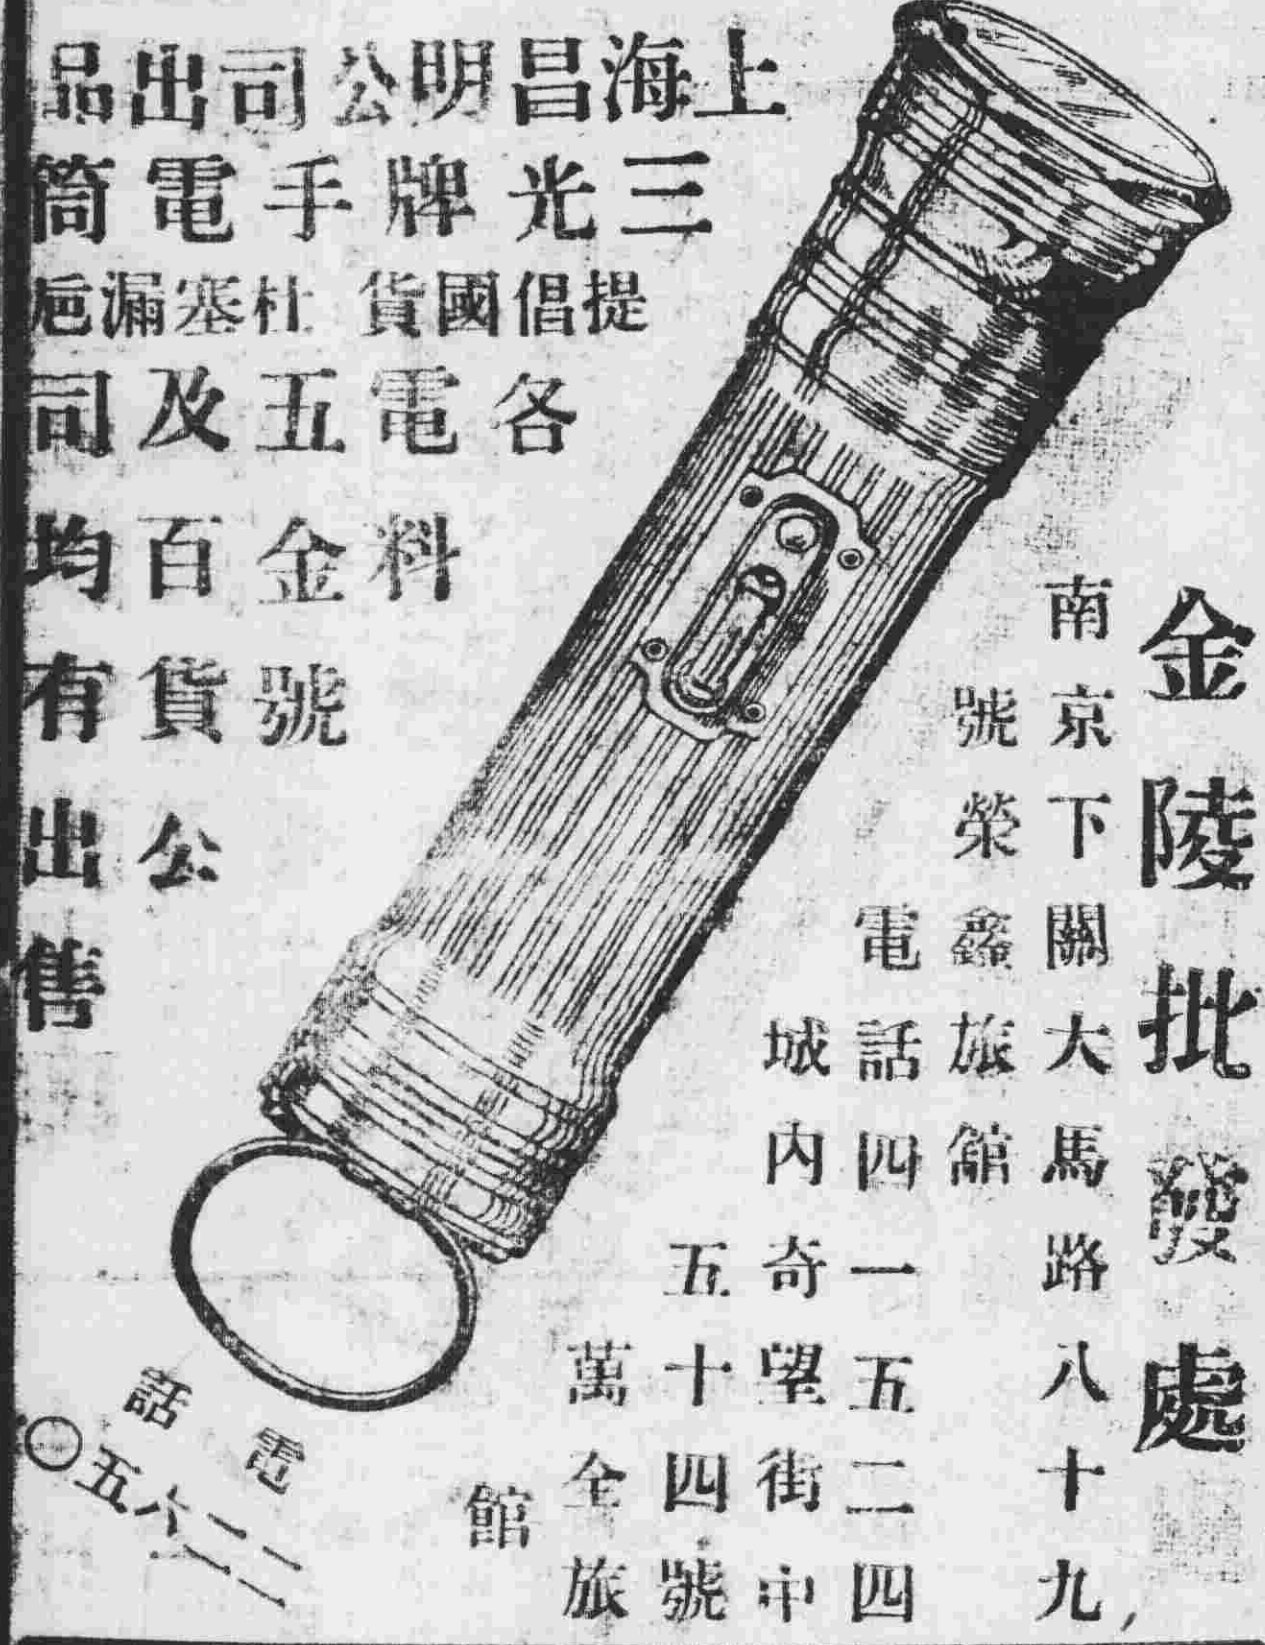 上海昌明公司出品
三光牌手電筒
提倡國貨 杜塞漏巵
各
電料
五金號
及百貨公
司均有出售
金陵批發處
南京下關大馬路八十九
號榮鑫旅館
電話四一五二四
城內奇望街中
五十四號
萬全旅
館
電話
二二六五〇